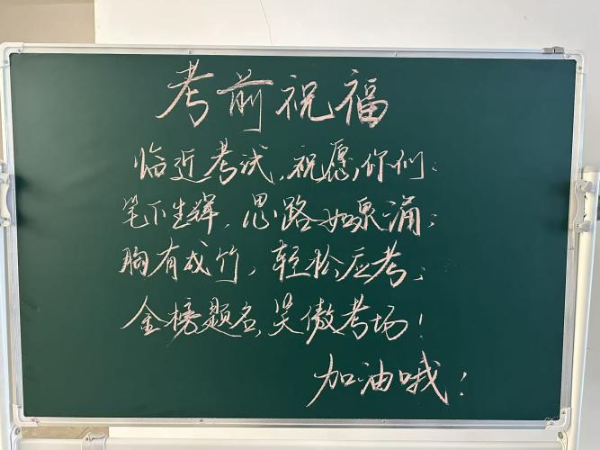 考前祝福
临近考试,祝愿你们:
笔下生辉,思路如泉涌;
胸有成竹,轻松应考;
金榜题名,笑傲考场!
加油哦!